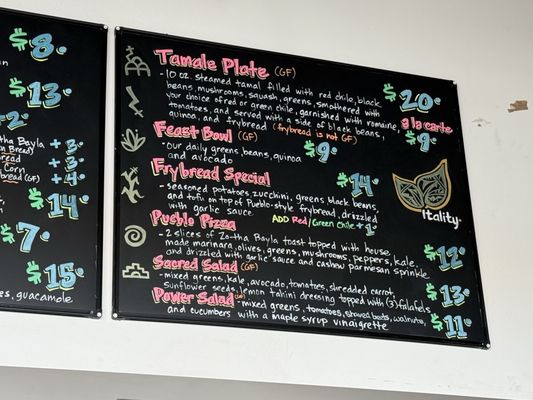 $8.
$13.
12.
tha Bayla + 3.
n Bread)
bread + 3.
Corn
bread (GF) + 4.
$14.
$7.
$15.
oes, guacamole
Tamale Plate (GF)
- 10 oz. steamed tamal filled with red chile, black $20.
beans, mushrooms, squash, greens, smothered with
your choice of red or green chile, garnished with romaine, a la carte
tomatoes, and served with a side of black beans, $9.
quinoa, and frybread (frybread is not GF)
Feast Bowl (GF) $9.
- our daily greens, beans, quinoa
and avocado
Frybread Special $14.
- seasoned potatoes, zucchini, greens, black beans,
and tofu on top of Pueblo-style frybread, drizzled
with garlic sauce. ADD Red/Green Chile +1.
Itality.
Pueblo Pizza
- 2 slices of Zo-tha Bayla toast topped with house $12.
made marinara, olives, greens, mushrooms, peppers, kale,
and drizzled with garlic sauce and cashew parmesan sprinkle.
Sacred Salad (GF) $13.
- mixed greens, kale, avocado, tomatoes, shredded carrot,
sunflower seeds, lemon tahini dressing topped with (3) falafels
Power Salad (GF) - mixed greens, tomatoes, stewed beets, walnuts, $11.
and cucumbers with a maple syrup vinaigrette